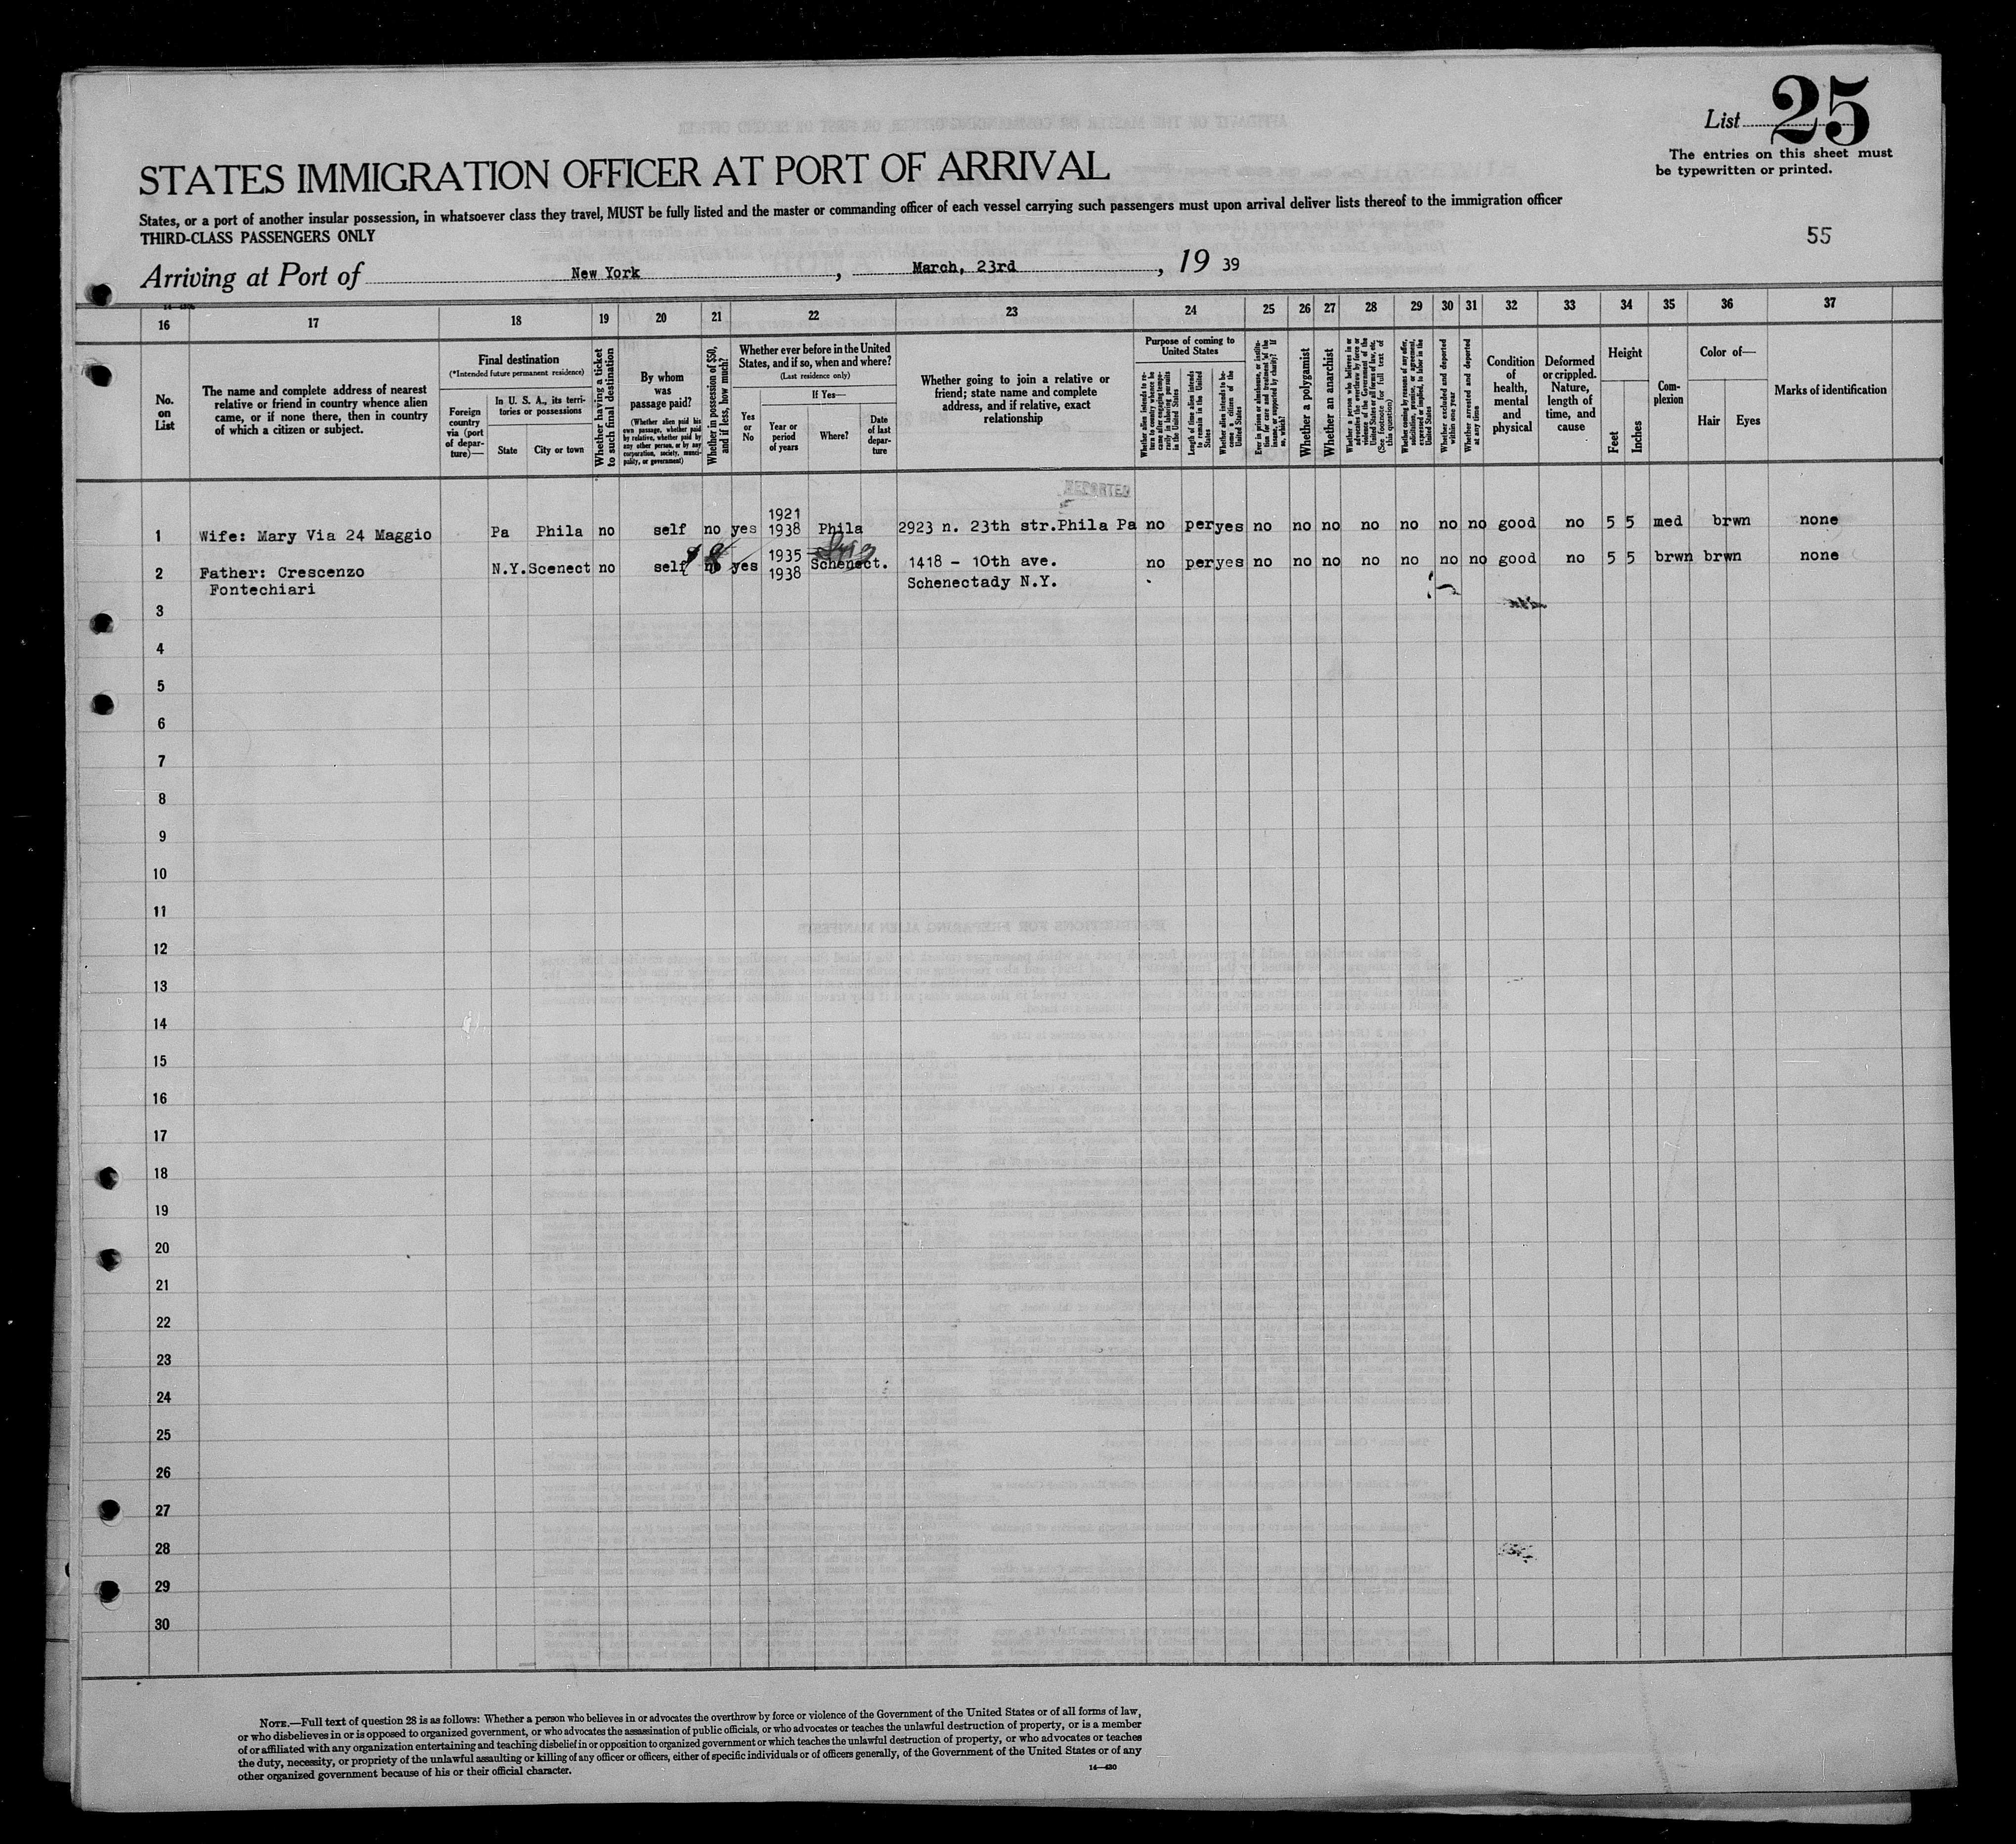 List 25
The entries on this sheet must
be typewritten or printed.
STATES IMMIGRATION OFFICER AT PORT OF ARRIVAL
States, or a port of another insular possession, in whatsoever class they travel, MUST be fully listed and the master or commanding officer of each vessel carrying such passengers must upon arrival deliver lists thereof to the immigration officer
THIRD-CLASS PASSENGERS ONLY
55
Arriving at Port of New York, March, 23rd, 19 39
16 17 18 19 20 21 22 23 24 25 26 27 28 29 30 31 32 33 34 35 36 37
No. on List
The name and complete address of nearest
relative or friend in country whence alien
came, or if none there, then in country
of which a citizen or subject.
Final destination
(*Intended future permanent residence)
Foreign country via (port of departure)—
In U. S. A., its territories or possessions
State
City or town
Whether having a ticket to such final destination
By whom was passage paid?
(Whether alien paid his own passage, whether paid by relative, whether paid by any other person, or by any corporation, society, municipality, or government)
Whether in possession of $50, and if less, how much?
Whether ever before in the United States, and if so, when and where?
(Last residence only)
Yes or No
If Yes—
Year or period of years
Where?
Date of last departure
Whether going to join a relative or
friend; state name and complete
address, and if relative, exact
relationship
Purpose of coming to United States
Whether alien intends to return to country whence he came after engaging temporarily in laboring pursuits in the United States
Length of time alien intends to remain in the United States
Whether alien intends to become a citizen of the United States
Ever in prison or almshouse, or institution for care and treatment of the insane, or supported by charity? If so, which?
Whether a polygamist
Whether an anarchist
Whether a person who believes in or advocates the overthrow by force or violence of the Government of the United States or all forms of law, etc. (See footnote for full text of this question)
Whether coming by reason of any offer, solicitation, promise, or agreement, expressed or implied, to labor in the United States
Whether excluded and deported within one year
Whether arrested and deported at any time
Condition of health, mental and physical
Deformed or crippled. Nature, length of time, and cause
Height
Feet
Inches
Complexion
Color of—
Hair
Eyes
Marks of identification
1 Wife: Mary Via 24 Maggio Pa Phila no self no yes 1921 1938 Phila 2923 n. 23th str.Phila Pa no per yes no no no no no no no good no 5 5 med brwn none
2 Father: Crescenzo Fontechiari N.Y. Scenect no self no yes 1935 1938 Schenect. 1418 - 10th ave. Schenectady N.Y. no per yes no no no no no no no good no 5 5 brwn brwn none
3
4
5
6
7
8
9
10
11
12
13
14
15
16
17
18
19
20
21
22
23
24
25
26
27
28
29
30
NOTE.—Full text of question 28 is as follows: Whether a person who believes in or advocates the overthrow by force or violence of the Government of the United States or of all forms of law,
or who disbelieves in or is opposed to organized government, or who advocates the assassination of public officials, or who advocates or teaches the unlawful destruction of property, or is a member
of or affiliated with any organization entertaining and teaching disbelief in or opposition to organized government or which teaches the unlawful destruction of property, or who advocates or teaches
the duty, necessity, or propriety of the unlawful assaulting or killing of any officer or officers, either of specific individuals or of officers generally, of the Government of the United States or of any
other organized government because of his or their official character.
14—430